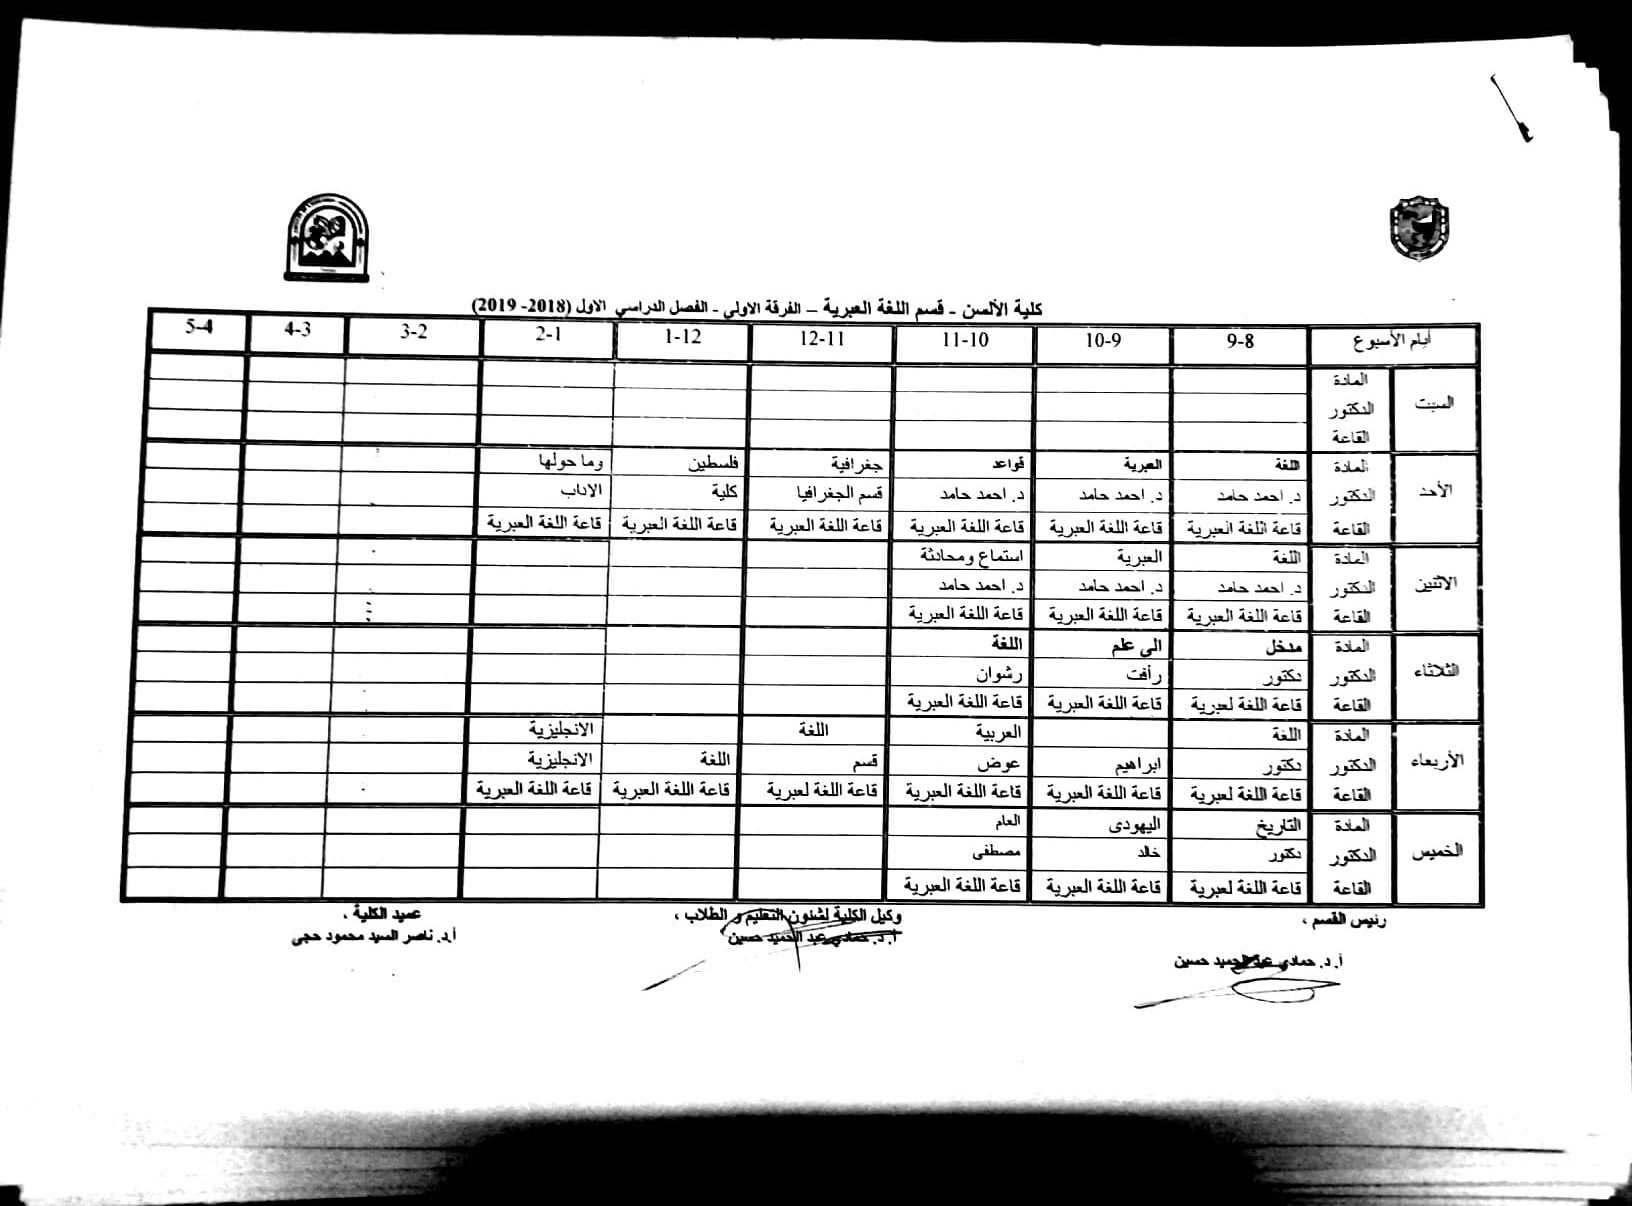 كلية الألسن - قسم اللغة العبرية – الفرقة الاولي - الفصل الدراسي الاول (2018- 2019)
أيام الأسبوع 9-8 10-9 11-10 12-11 1-12 2-1 3-2 4-3 5-4
السبت
المادة
الدكتور
القاعة
الأحد
المادة اللغة العبرية قواعد جغرافية فلسطين وما حولها
الدكتور د. احمد حامد د. احمد حامد د. احمد حامد قسم الجغرافيا كلية الاداب
القاعة قاعة اللغة العبرية قاعة اللغة العبرية قاعة اللغة العبرية قاعة اللغة العبرية قاعة اللغة العبرية قاعة اللغة العبرية
الاثنين
المادة اللغة العبرية استماع ومحادثة
الدكتور د. احمد حامد د. احمد حامد د. احمد حامد
القاعة قاعة اللغة العبرية قاعة اللغة العبرية قاعة اللغة العبرية
الثلاثاء
المادة مدخل الي علم اللغة
الدكتور دكتور رأفت رشوان
القاعة قاعة اللغة لعبرية قاعة اللغة العبرية قاعة اللغة العبرية
الأربعاء
المادة اللغة العربية اللغة الانجليزية
الدكتور دكتور ابراهيم عوض قسم اللغة الانجليزية
القاعة قاعة اللغة لعبرية قاعة اللغة العبرية قاعة اللغة العبرية قاعة اللغة لعبرية قاعة اللغة العبرية قاعة اللغة العبرية
الخميس
المادة التاريخ اليهودى العام
الدكتور دكتور خالد مصطفى
القاعة قاعة اللغة لعبرية قاعة اللغة العبرية قاعة اللغة العبرية
رئيس القسم ، وكيل الكلية لشئون التعليم و الطلاب ، عميد الكلية ،
أ. د. حمادي عبد الحميد حسين أ.د. ناصر السيد محمود حجى
أ. د. حمادي عبد الحميد حسين